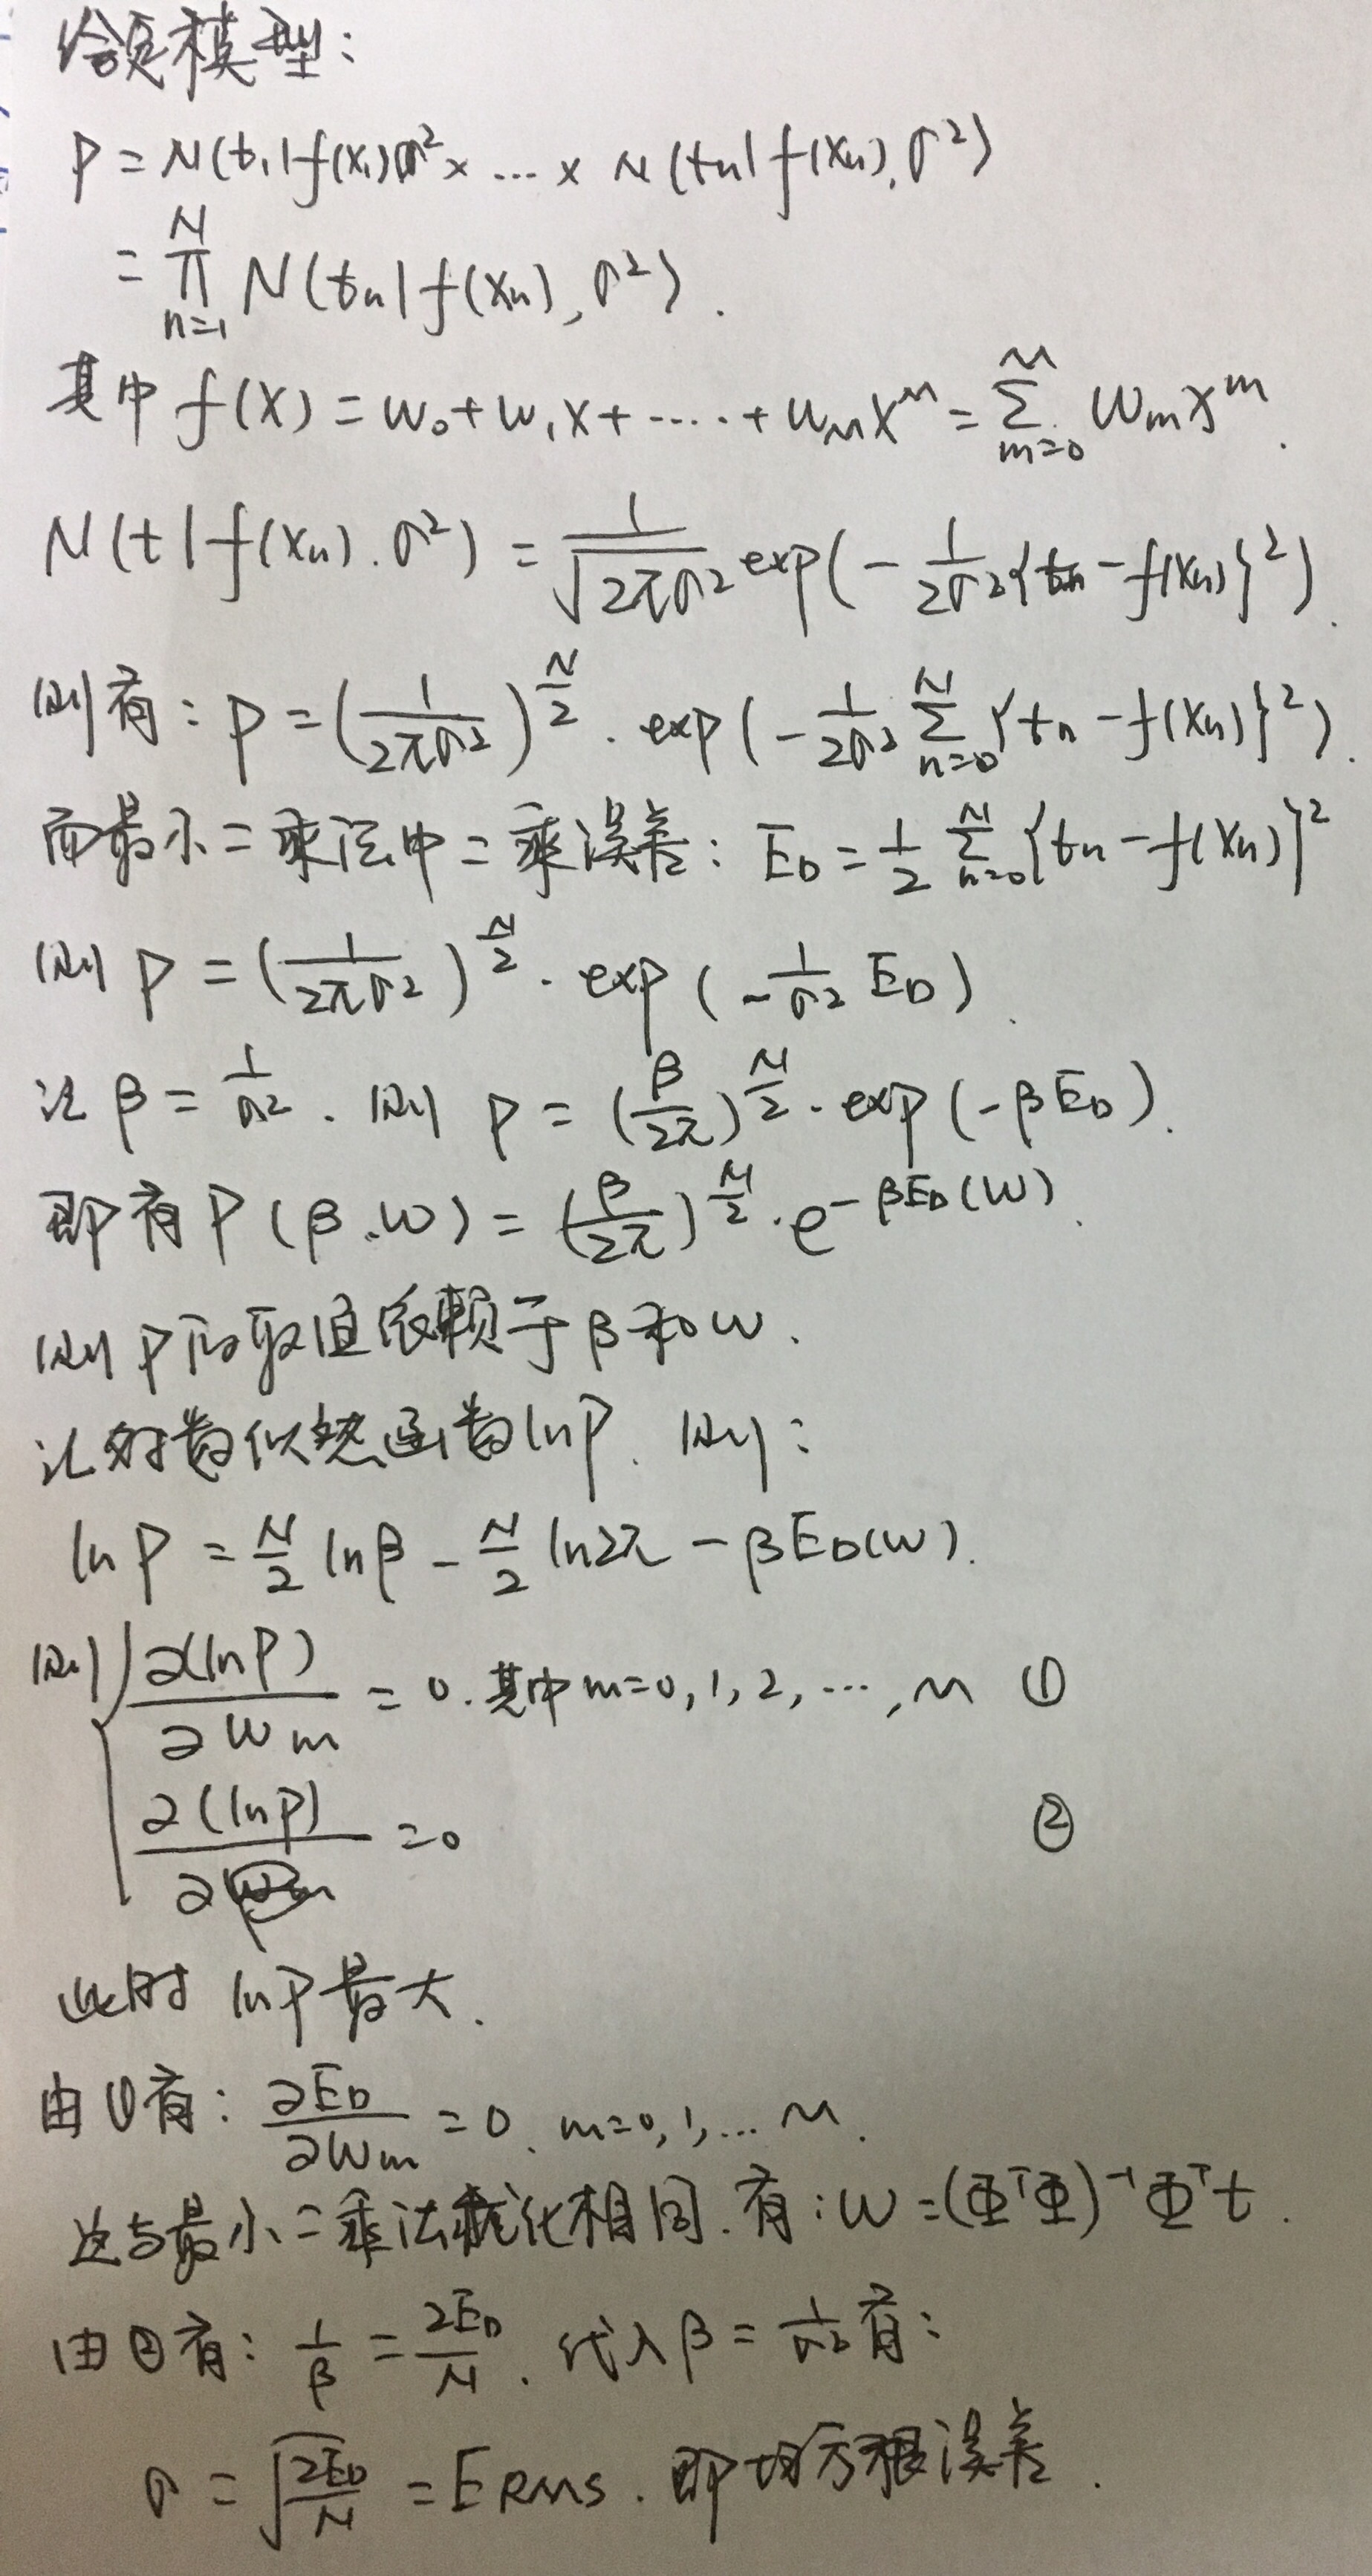 给定模型：
P = N(t₁|f(x₁)σ² × … × N(tn|f(xn), σ²)
= ∏_{n=1}^{N} N(tn|f(xn), σ²).
其中 f(x) = w₀ + w₁x + ····· + w_M x^M = ∑_{m=0}^{M} w_m x^m.
N(t|f(xn). σ²) = 1/√(2πσ²) exp(-1/(2σ²){tn - f(xn)}²).
则有：P = (1/(2πσ²))^{N/2} · exp(-1/(2σ²) ∑_{n=0}^{N}{tn - f(xn)}²).
而最小二乘法中二乘误差：E_D = 1/2 ∑_{n=0}^{N}{tn - f(xn)}²
则 P = (1/(2πσ²))^{N/2} · exp(-1/σ² E_D).
让 β = 1/σ². 则 P = (β/2π)^{N/2} · exp(-βE_D).
即有 P(β.w) = (β/2π)^{N/2} · e^{-βE_D(w)}.
则 P的取值依赖于 β和w.
让对数似然函数lnP. 则：
lnP = N/2 lnβ - N/2 ln2π - βE_D(w).
则 { ∂(lnP)/∂w_m = 0. 其中 m=0,1,2,…,M ①
∂(lnP)/∂β = 0 ②
此时 lnP最大.
由①有：∂E_D/∂w_m = 0. m=0,1,… M.
这与最小二乘法优化相同. 有：w = (Φ^TΦ)^{-1}Φ^T t.
由②有：1/β = 2E_D/N. 代入 β = 1/σ² 有：
σ = √(2E_D/N) = E_RMS. 即均方根误差.